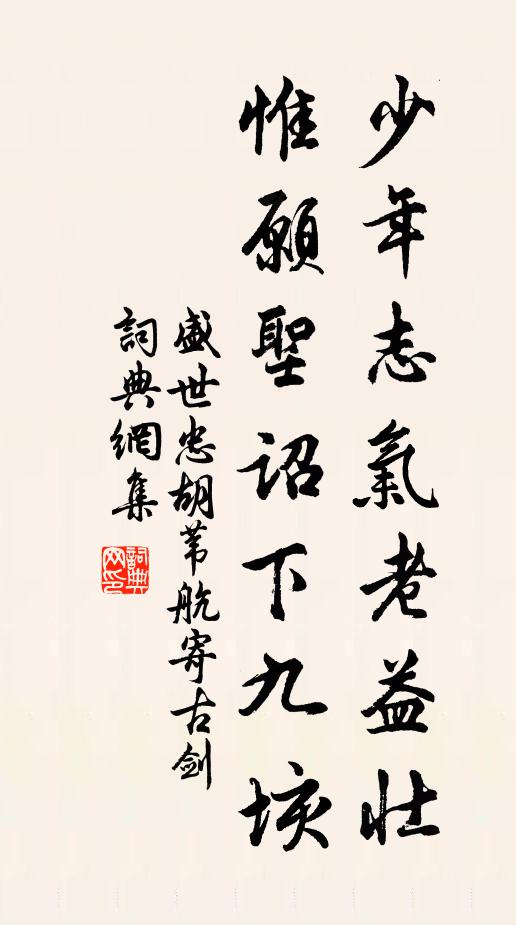 少年志氣老益壯
惟願聖詔下九垓
盛世忠胡苇航寄古劍
詞典網集
詞典网印